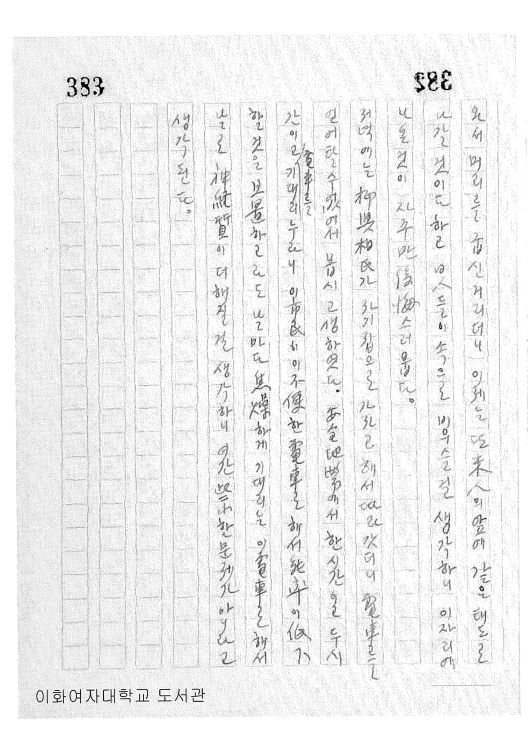 383
382
와서 머리를 굽신거리더니 이제는 또 米人의 앞에 같은 태도로
나갈 것이다 하고 日人들이 속으로 비우슬걸 생각하니 이 자리에
나온 것이 자꾸만 後悔스러웁다.
저녁에는 柳興相氏가 자기집으로 가자고 해서 따라 갔더니 電車를
얻어 탈 수 없어서 몹시 고생하였다. 安全地帶에서 한 시간을 두 시
간이고 電車를 기대리누라니 이 市民들이 이 不便한 電車를 해서 能率이 低下
할 것은 하고라도 날마다 焦燥하게 기대리는 이 電車를 해서
날로 神經質이 더해질 걸 생각하니 여간 한 문제가 아니라고
생각된다.
이화여자대학교 도서관